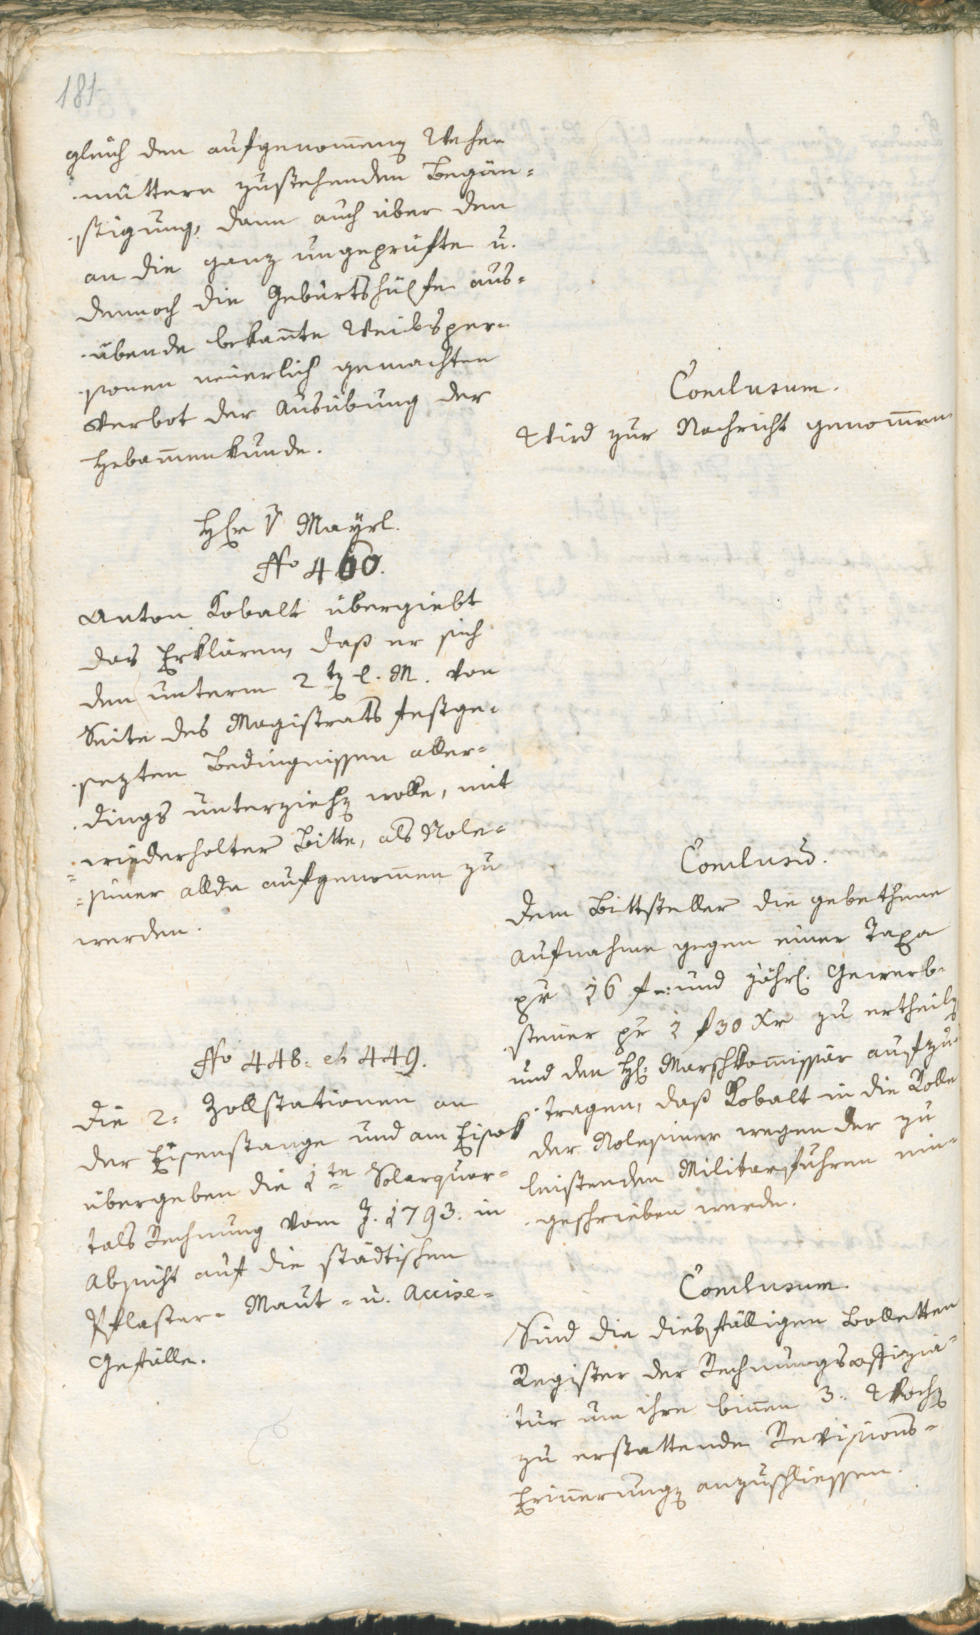 181
gleich den aufgenom̅enen Wehe-
müttern zustehenden Begün-
stigung, dann auch über den
an die ganz ungeprüfte u.
dennoch die Geburtshülfe aus-
übende bekan̅te Weibsper-
sonen neuerlich gemachten
Verbot der Ausübung der
Hebam̅enkunde.
Conclusum.
Wird zur Nachricht genom̅en
Hr v Mayrl.
No 460.
Anton Kobalt übergiebt
das Erklären, daß er sich
den unterm 2ten l. M. von
Seite des Magistrats festge-
sezten Bedingnissen aller-
dings unterziehen wolle, mit
wiederholter Bitte, als Nole-
siner allda aufgenom̅en zu
werden.
Conclusū.
Dem Bittsteller die gebethene
Aufnahme gegen einer Taxa
pr 16 f. und jährl. Gewerb-
steuer pr 1 f 30 Xr zu ertheilen
und den H. Marschkom̅issär aufzu-
tragen, daß Kobalt in die Rolle
der Nolesiner wegen der zu
leistenden Militarfuhren ein-
geschrieben werde.
No 448. et 449.
Die 2. Zollstationen an
der Eisenstange und am Eisak
übergeben die 1te Solarquar-
tals Rechnung vom J. 1793. in
Absicht auf die städtischen
Pflaster- Maut- u. Accise-
Gefälle.
Conclusum.
Sind die diesfälligen Bolletten
Register der Rechnungsoffizia-
tur um ihre bin̅en 3. Wochen
zu erstattende Revisions-
Erin̅erungen anzuschliessen.